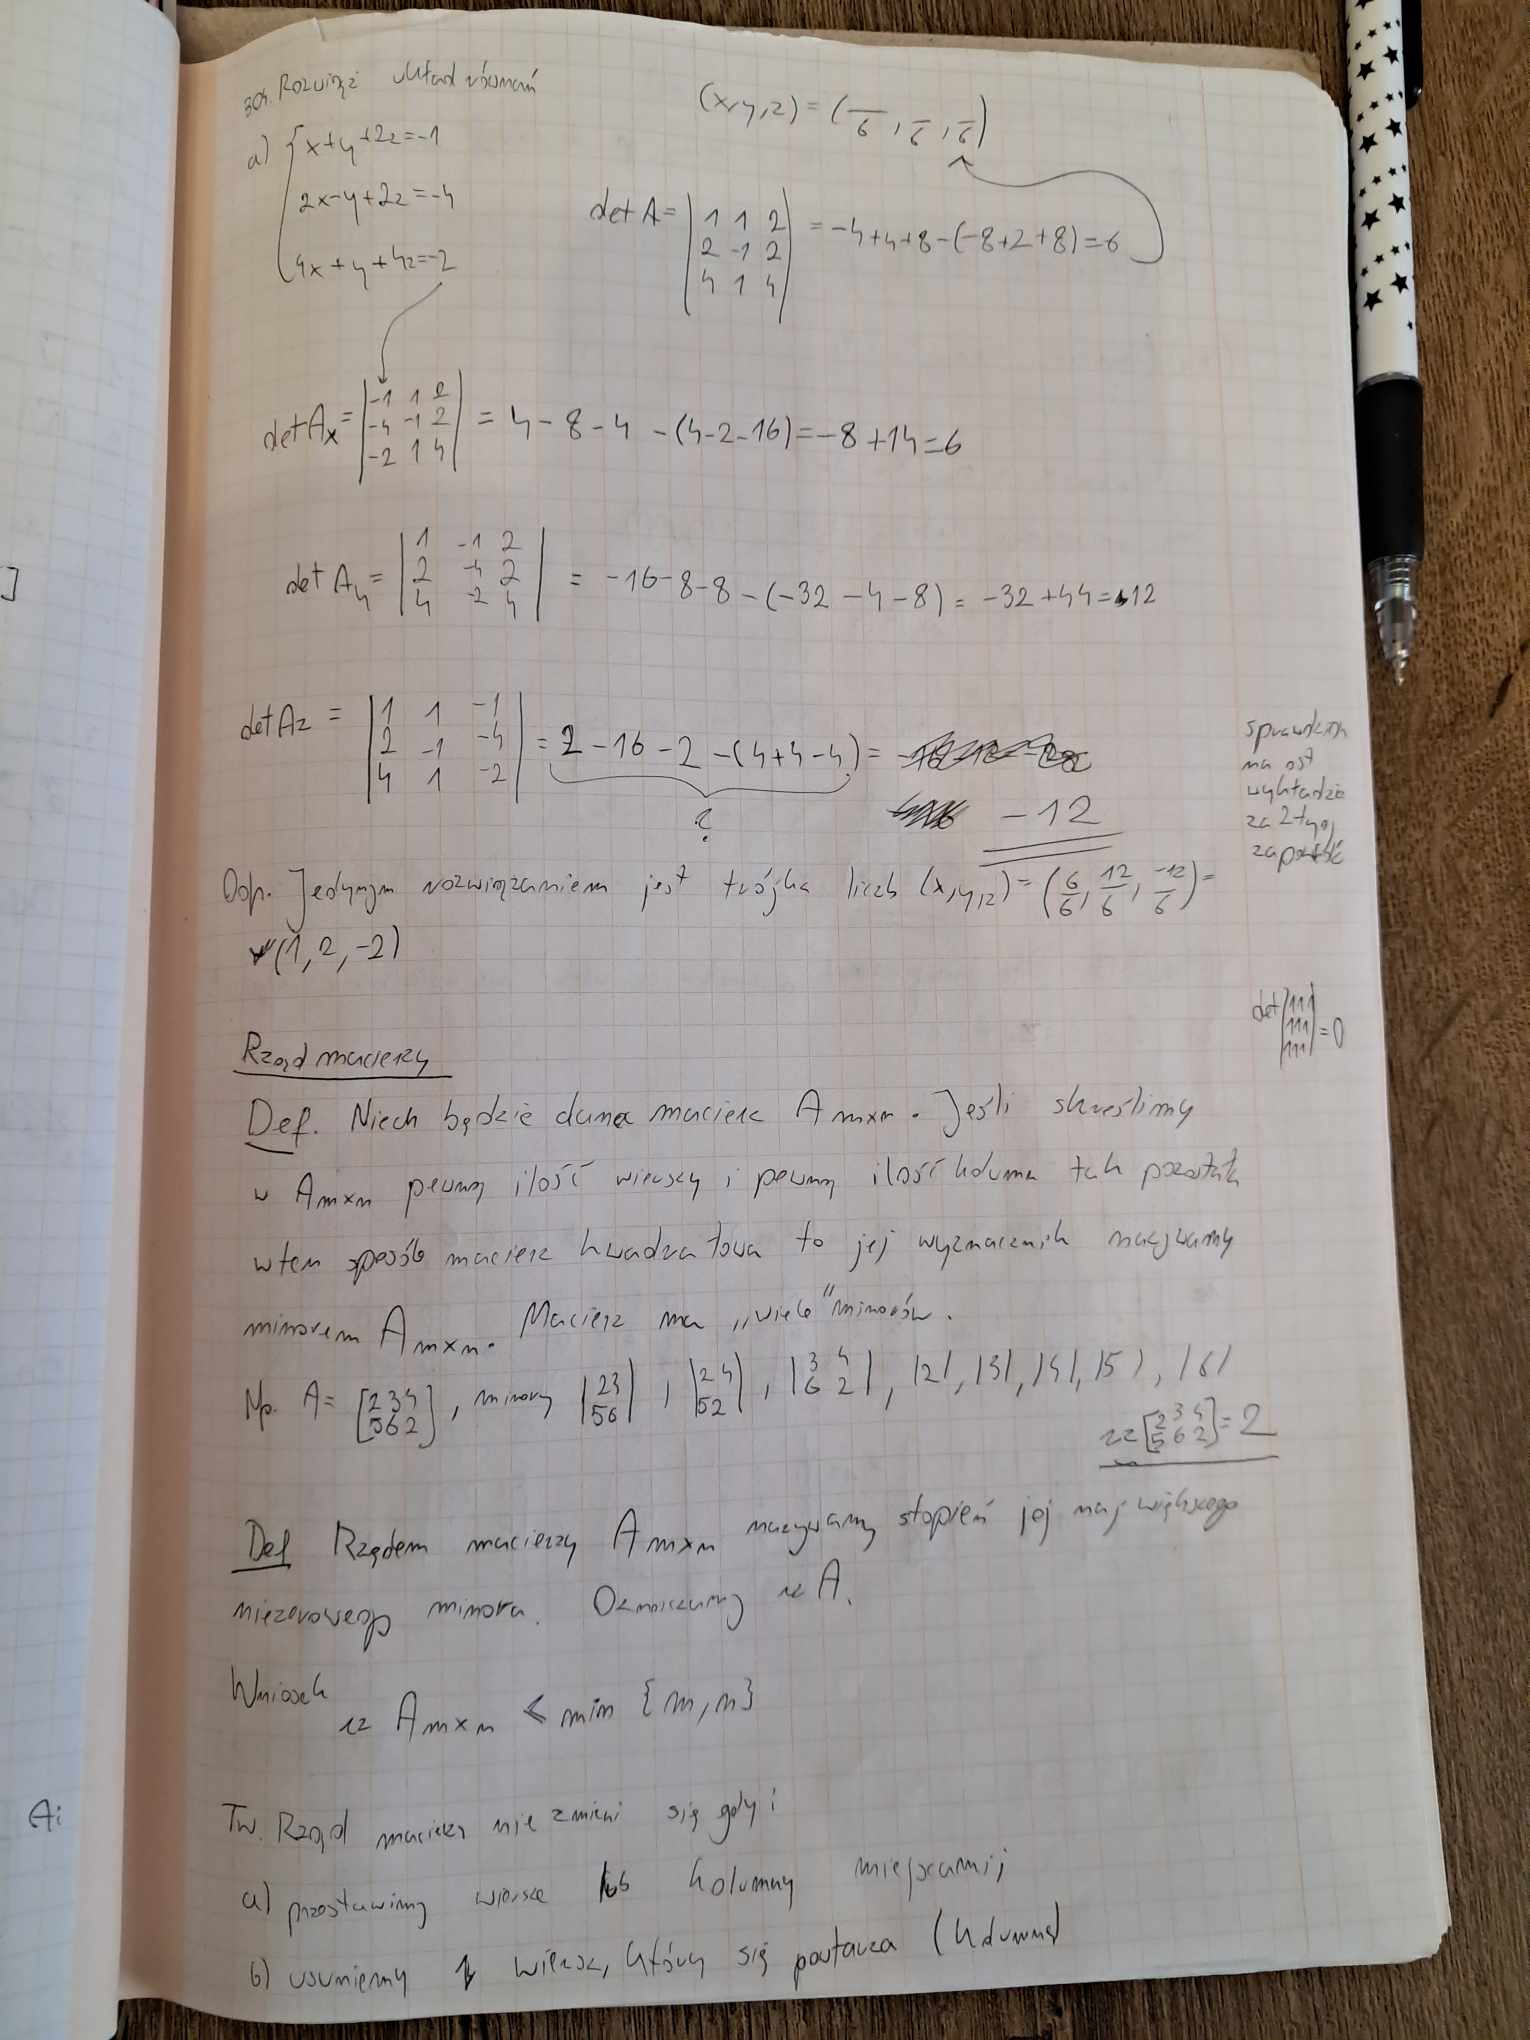 304. Rozwiąż układ równań
a) { x+y+2z=-1
2x-y+2z=-4
4x+y+4z=-2
(x,y,z) = ( /6, /6, /6)
det A = |1 1 2| = -4+4+8-(-8+2+8)=6
|2 -1 2|
|4 1 4|
det Ax = |-1 1 2| = 4-8-4-(4-2-16)=-8+14=6
|-4 -1 2|
|-2 1 4|
det Ay = |1 -1 2| = -16-8-8-(-32-4-8)=-32+44=12
|2 -4 2|
|4 -2 4|
det Az = |1 1 -1| = 2-16-2-(4+4-4)=
|2 -1 -4|
|4 1 -2|
?
-12
sprawdzian
na ost
wykładzie
za 2 tyg
Odp. Jedynym rozwiązaniem jest trójka liczb (x,y,z)=(6/6, 12/6, -12/6)=
(1, 2, -2)
det |111|
|111| =0
|111|
Rząd macierzy
Def. Niech będzie dana macierz Amxn. Jeśli skreślimy
w Amxn pewną ilość wierszy i pewną ilość kolumn tak
w ten sposób macierz kwadratowa to jej wyznacznik nazywamy
minorem Amxn. Macierz ma „wiele" minorów.
Np. A= [2 3 4], minory |2 3|, |2 4|, |3 4|, |2|, |3|, |4|, |5|, |6|
[5 6 2] |5 6| |5 2| |6 2|
rz [2 3 4] = 2
[5 6 2]
Def Rzędem macierzy Amxn nazywamy stopień jej największego
niezerowego minora. Oznaczamy rz A.
Wniosek
rz Amxn ≤ min {m,n}
Tw. Rząd macierzy nie zmieni się gdy:
a) przestawimy wiersze lub kolumny miejscami;
b) usuniemy 1 wiersz, który się powtarza (kolumnę)
]
Ai